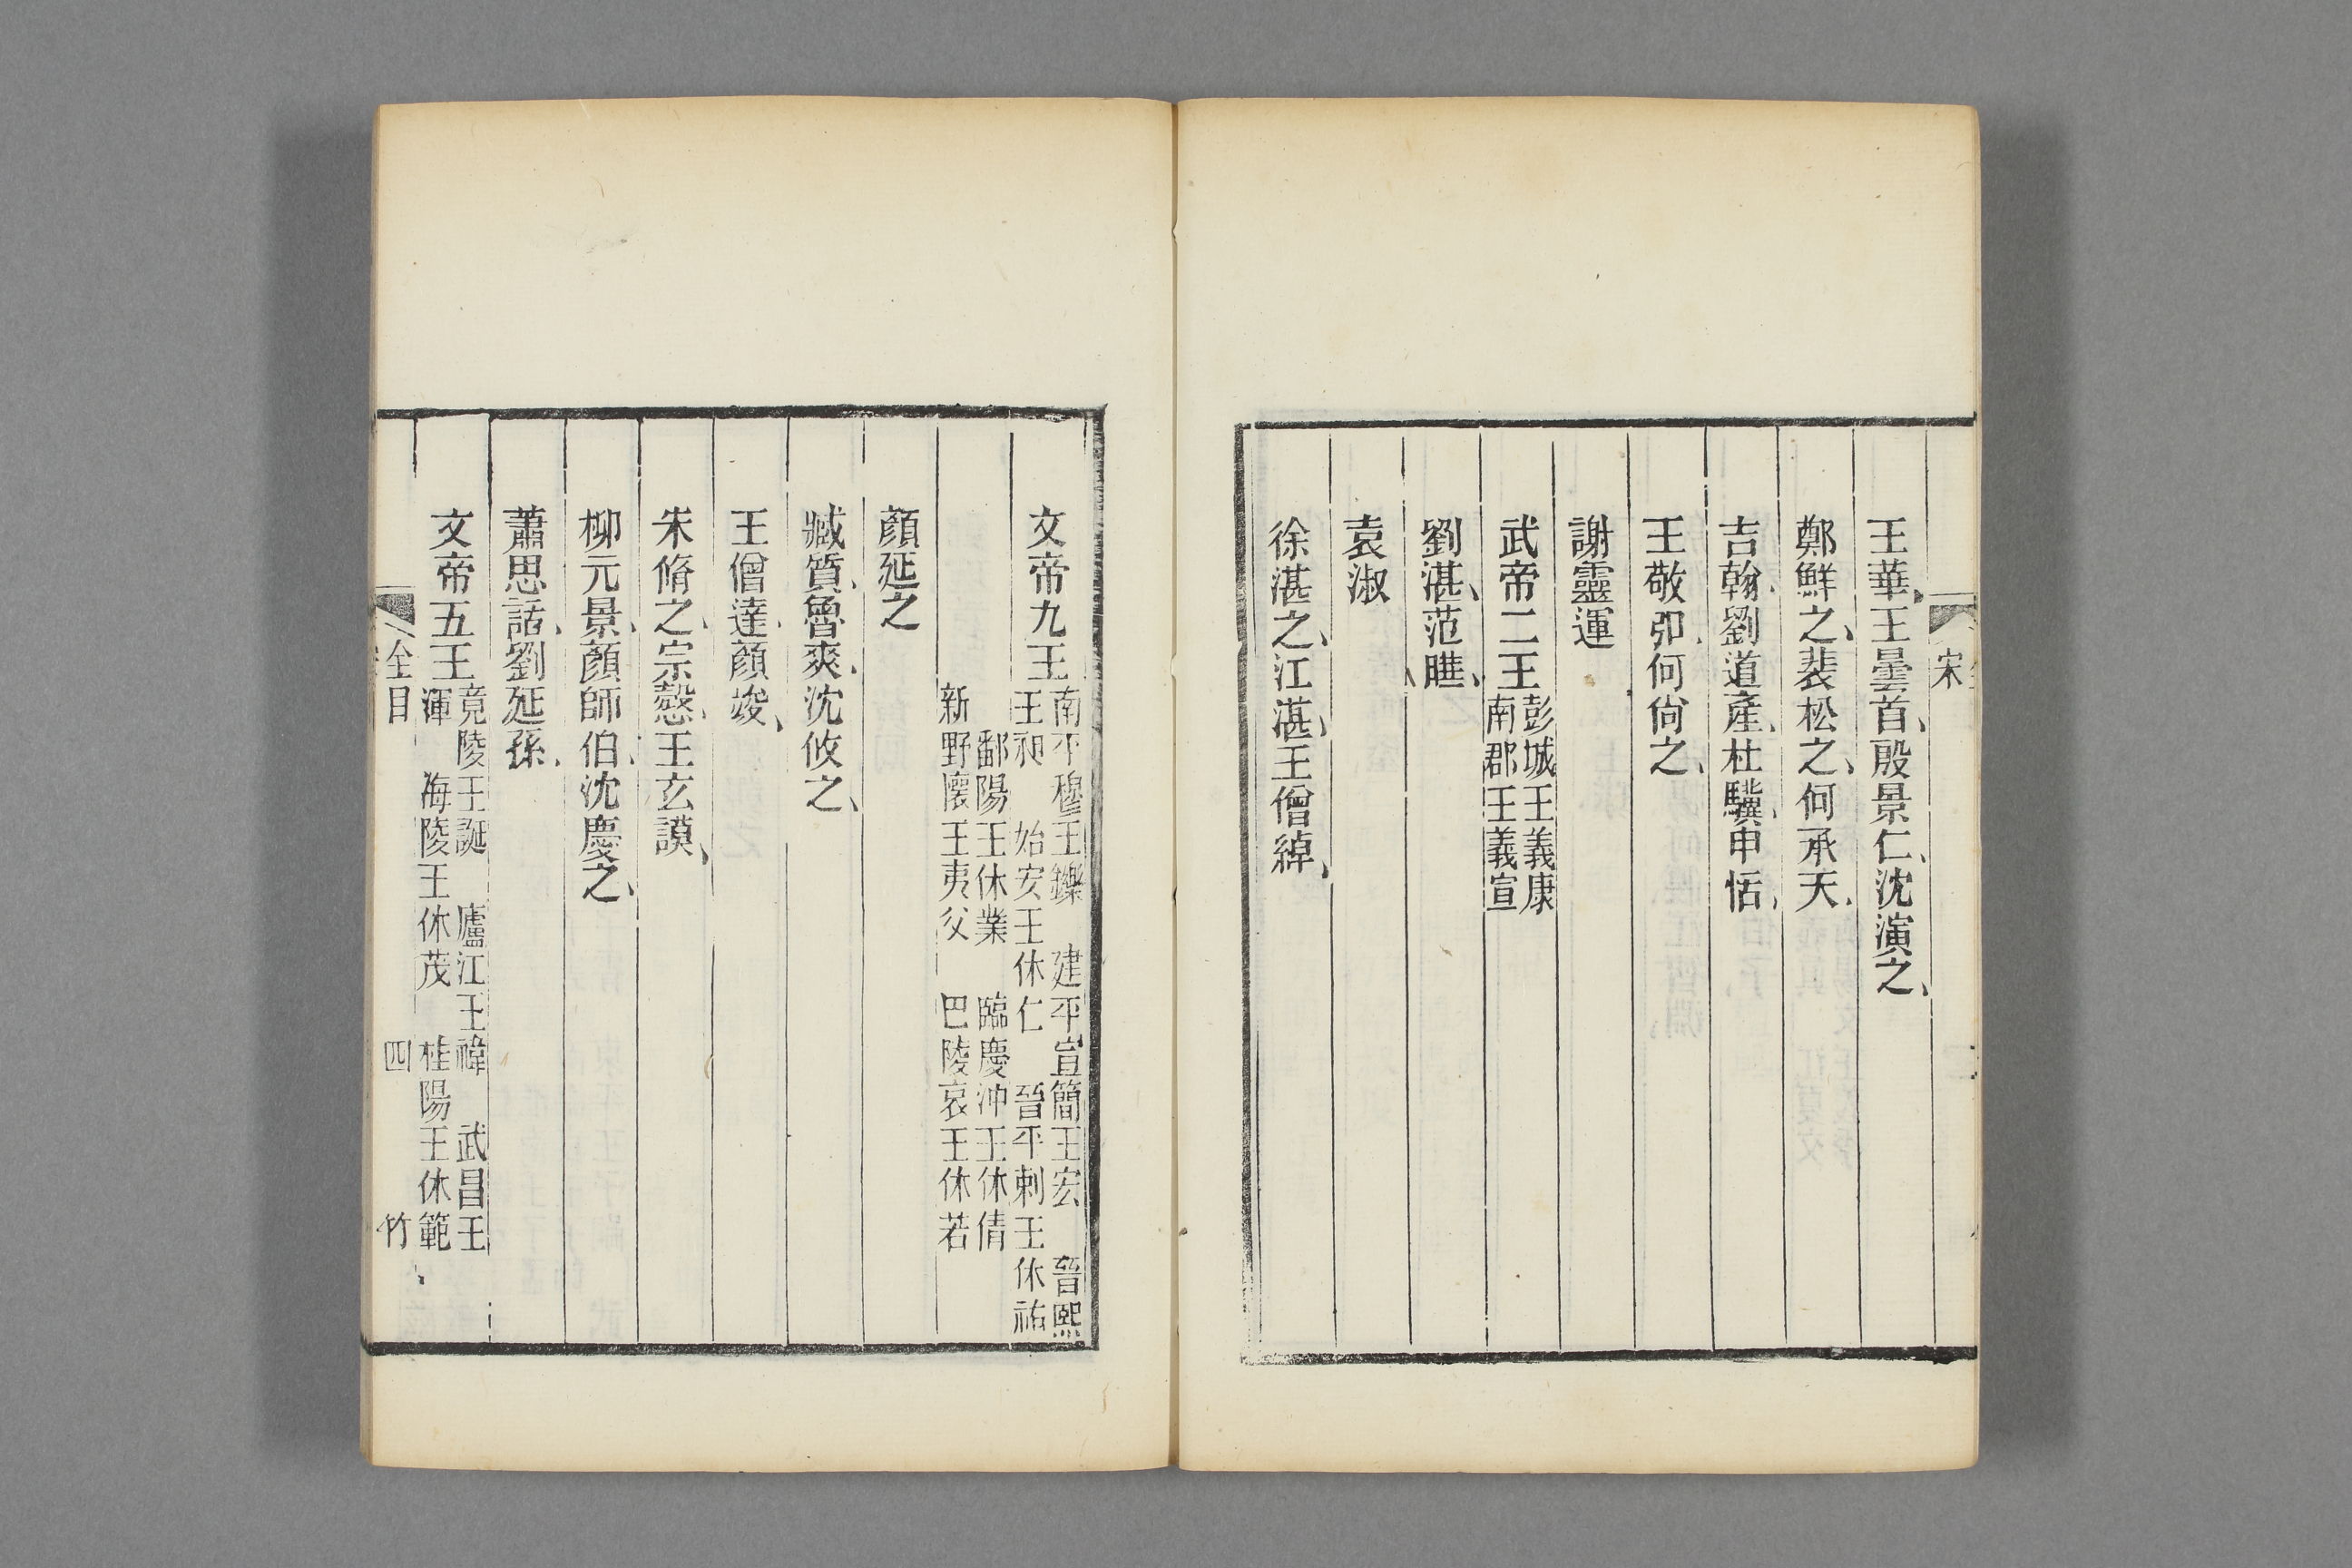 宋
王華王曇首殷景仁沈演之
鄭鮮之裴松之何承天
吉翰劉道產杜驥申恬
王敬弘何尙之
謝靈運
武帝二王
彭城王義康
南郡王義宣
劉湛范曄
袁淑
徐湛之江湛王僧綽
文帝九王
南平穆王鑠　建平宣簡王宏　晉熙
王昶　始安王休仁　晉平剌王休祐
鄱陽王休業　臨慶沖王休倩
新野懷王夷父　巴陵哀王休若
顏延之
臧質魯爽沈攸之
王僧達顏竣
朱脩之宗慤王玄謨
柳元景顏師伯沈慶之
蕭思話劉延孫
文帝五王
竟陵王誕　廬江王禕　武昌王
渾　海陵王休茂　桂陽王休範
全目　四　竹